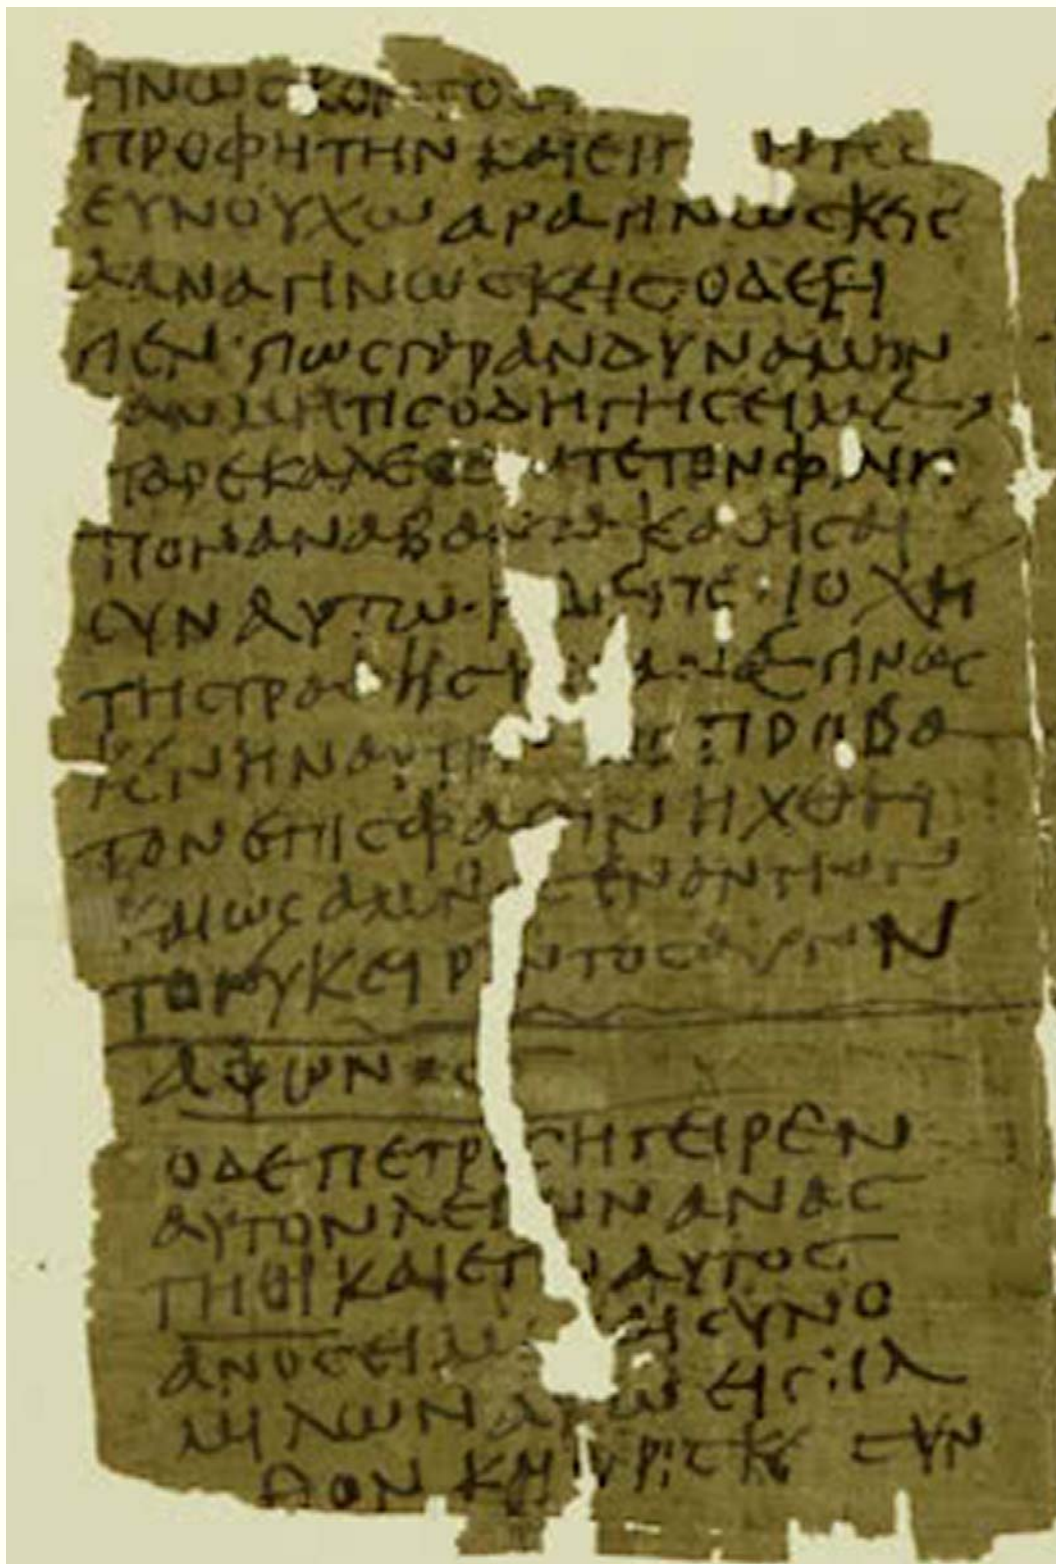 ΠΡΟΦΗΤΗΝ ΚΑΙ ΕΙΠ
ΕΥΝΟΥΧΩ ΑΡΑ ΓΙΝΩϹΚΗϹ
Α ΑΝΑΓΙΝΩϹΚΗϹ Ο ΔΕ ΕΙ
ΠΕΝ ΠΩϹ ΓΑΡ ΑΝ ΔΥΝΑΜΗΝ
ΑΝ ΜΗ ΤΙϹ ΟΔΗΓΗϹΕΙ ΜΕ
ΠΑΡΕΚΑΛΕϹΕ ΤΕ ΤΟΝ ΦΙΛΙΠ
ΠΟΝ ΑΝΑΒΑΝΤΑ ΚΑΘΙϹΑΙ
ϹΥΝ ΑΥΤΩ
ΤΗϹ ΓΡΑΦΗϹ ΑΝΕΓΙΝΩϹ
ΚΕΝ ΗΝ ΑΥΤΗ ΠΡΟΒΑ
ΤΟΝ ΕΠΙ ϹΦΑΓΗΝ ΗΧΘΗ
ΚΑΙ ΩϹ ΑΜΝΟϹ ΕΝΑΝΤΙΟΝ
ΤΟΥ ΚΕΙΡΟΝΤΟϹ ΑΥΤΟΝ
ΑΦΩΝΟϹ
Ο ΔΕ ΠΕΤΡΟϹ ΗΓΕΙΡΕΝ
ΑΥΤΟΝ ΛΕΓΩΝ ΑΝΑϹ
ΤΗΘΙ ΚΑΙ ΕΓΩ ΑΥΤΟϹ
ΑΝΟϹ ΕΙΜΙ ΚΑΙ ϹΥΝΟ
ΜΙΛΩΝ ΑΥΤΩ ΕΙϹΗΛ
ΘΟΝ ΚΑΙ ΕΥΡΙϹΚΕΙ ϹΥΝ